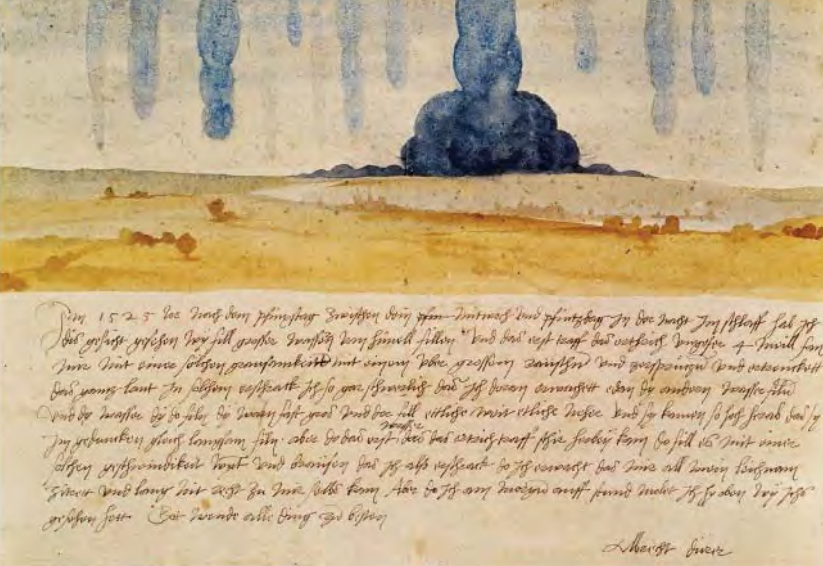 Im 1525 Jor nach dem pfinxstag zwischen dem Mitwoch und pfintzdag in der nacht im schlaff hab ich
dis gesicht gesehen wy fill grosser wassern vom himell fillen Und das erst traff das erthrich ungefer 4 meill fan
mir mit einer solchen grausamkeitt mit einem uber grossem raüschn und zersprützn und ertrenckett
das gannz lant In solchem erschrack ich so gar schwerlich das ich doran erwachett edan dy andern wasser filn
Und dy wasser dy do filn dy warn fast gros und der fill ettliche weit etliche neher und sy kamen so hoch herab das sy
im gedancken gleich langsam filn. aber do das erst wasser das das ertrich traff schir herbey kam do fill es mit einer
solchen geschwindikeit wynt und braüsen das ich also erschrack do ich erwacht das mir all mein leichnam
zitrett und lang nit recht zu mir selbs kam Aber do ich am morgn auff stund molet ich hy oben wy ichs
gesehen hett. Got wende alle ding zu besten
Albrecht dürer